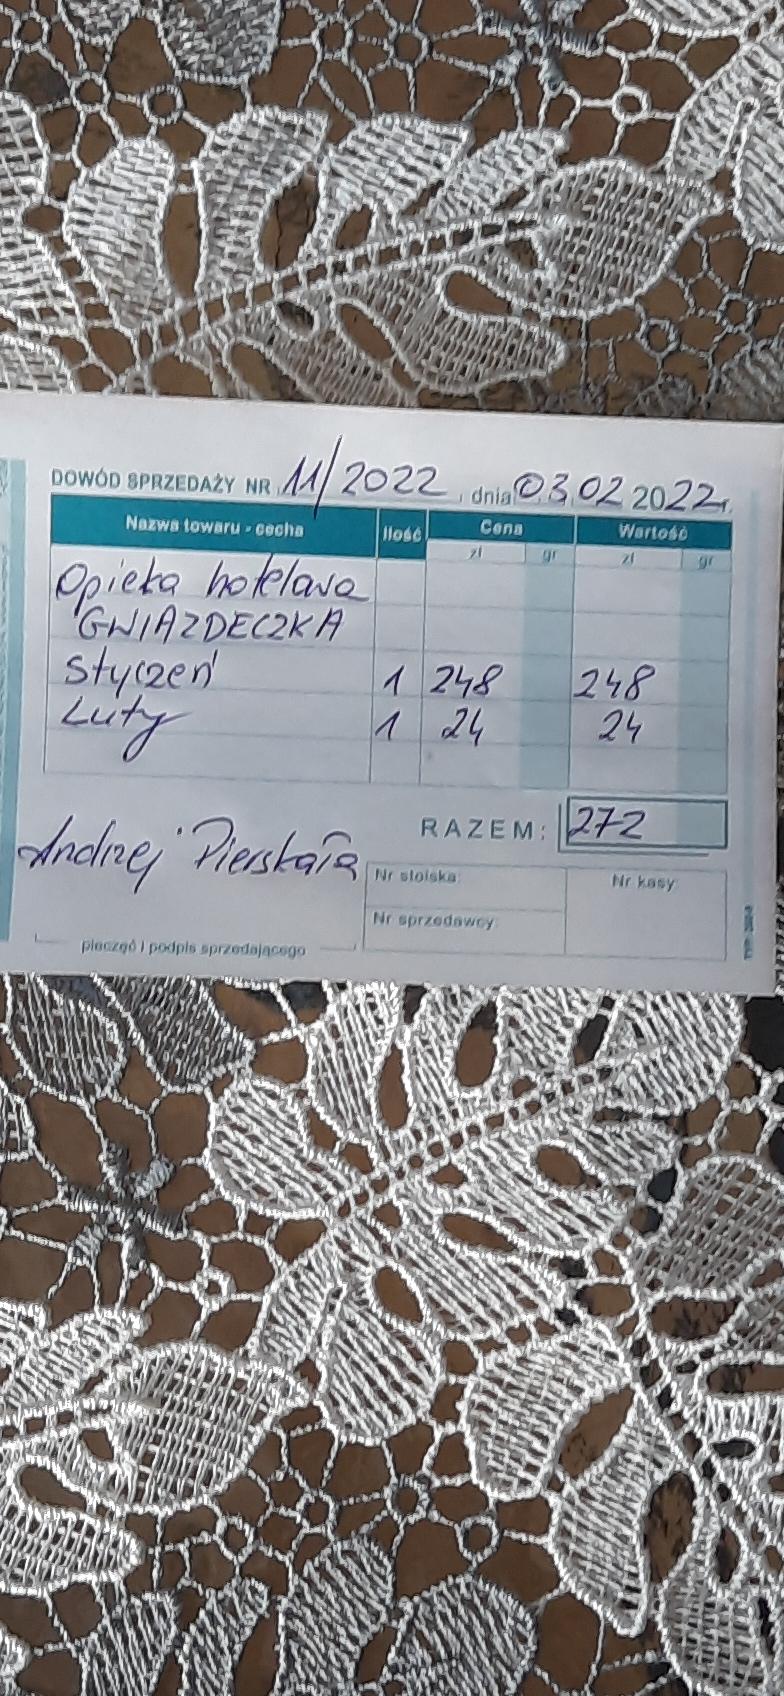 DOWÓD SPRZEDAŻY NR 11/2022, dnia 03.02 2022r.
Nazwa towaru - cecha Ilość Cena Wartość
zł gr zł gr
Opieka hotelowa
GWIAZDECZKA
Styczeń 1 248 248
Luty 1 24 24
RAZEM: 272
Andrzej Pierskała
Nr stoiska: Nr kasy:
Nr sprzedawcy:
pieczęć i podpis sprzedającego